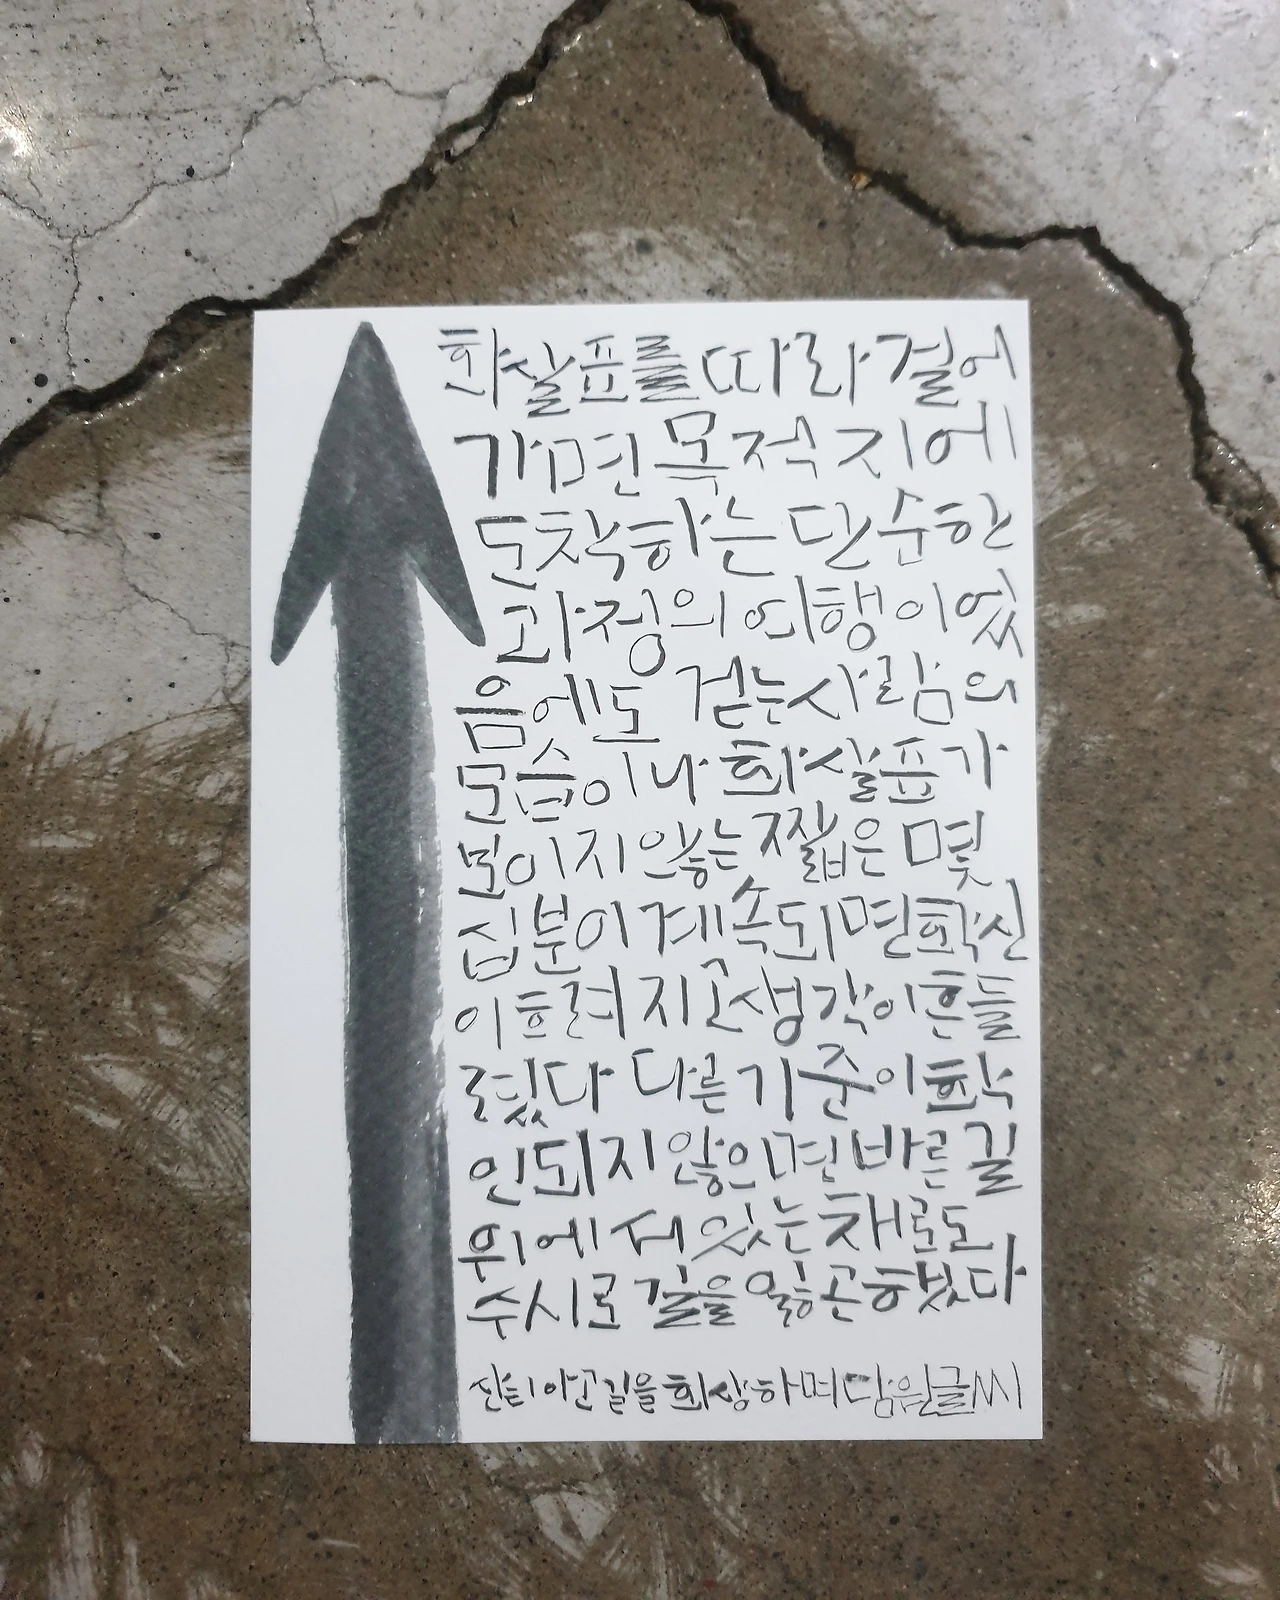 화살표를 따라 걸어
가면 목적지에
도착하는 단순한
과정의 여행이었
음에도 걷는 사람의
모습이나 화살표가
보이지 않는 짧은 몇
십분이 계속되면 확신
이 흐려지고 생각이 흔들
렸다 다른 기준이 확
인되지 않으면 바른 길
위에 서 있는 채로도
수시로 길을 잃곤 했다
산티아고 길을 회상하며 담원글씨